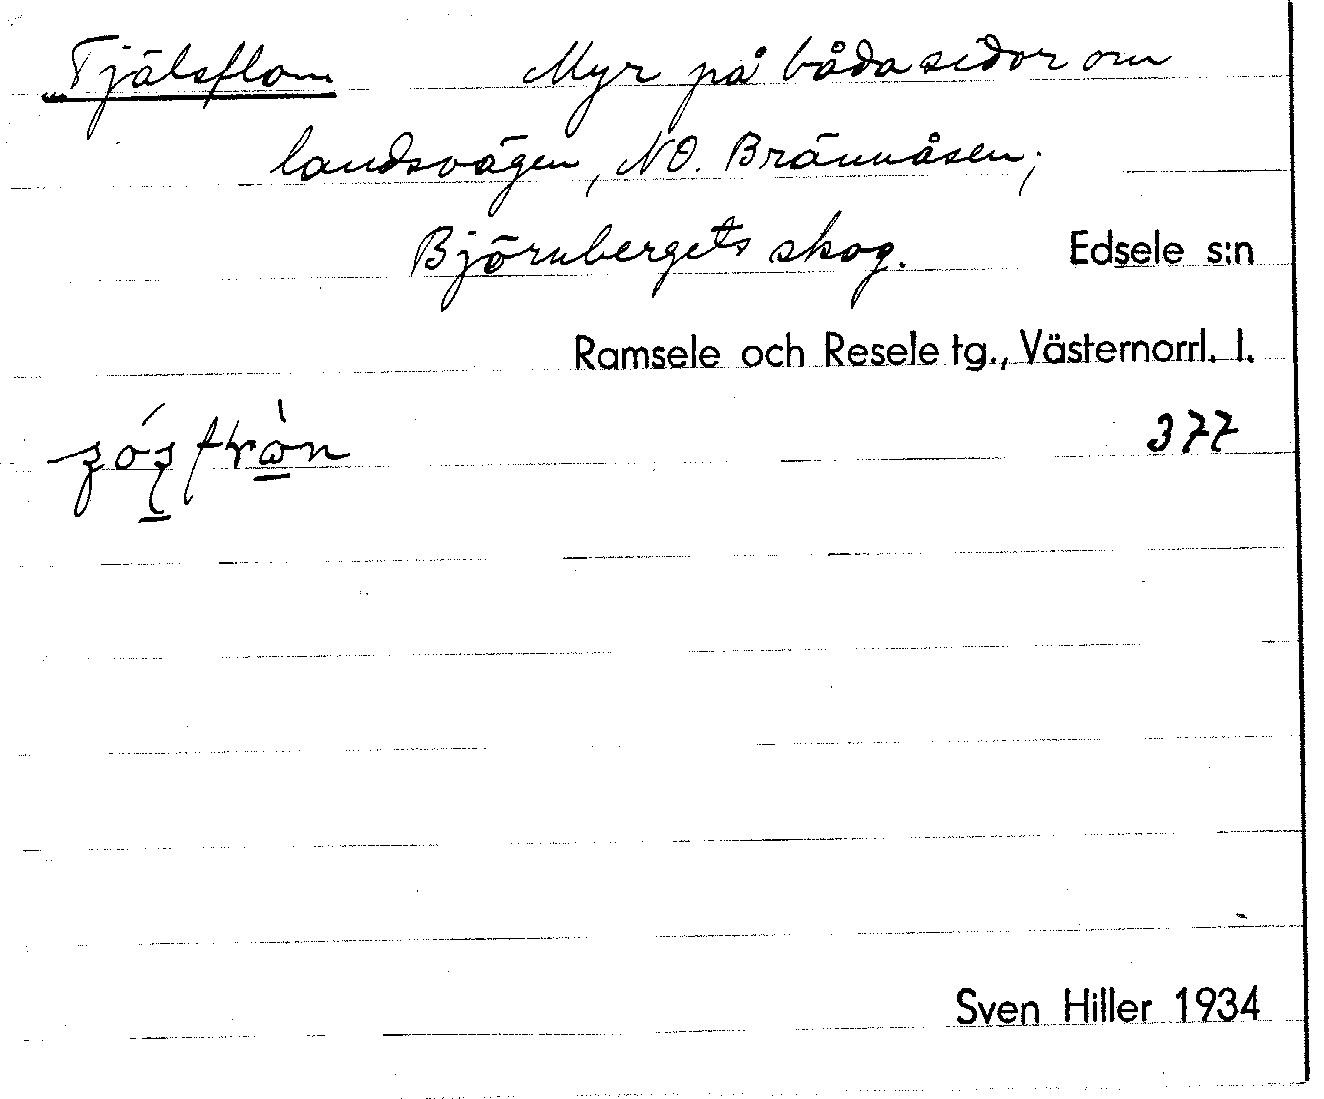 Tjälsflon Myr på båda sidor om
landsvägen, NO. Brännåsen;
Björnbergets skog. Edsele s:n
Ramsele och Resele tg., Västernorrl. l.
377
Sven Hiller 1934